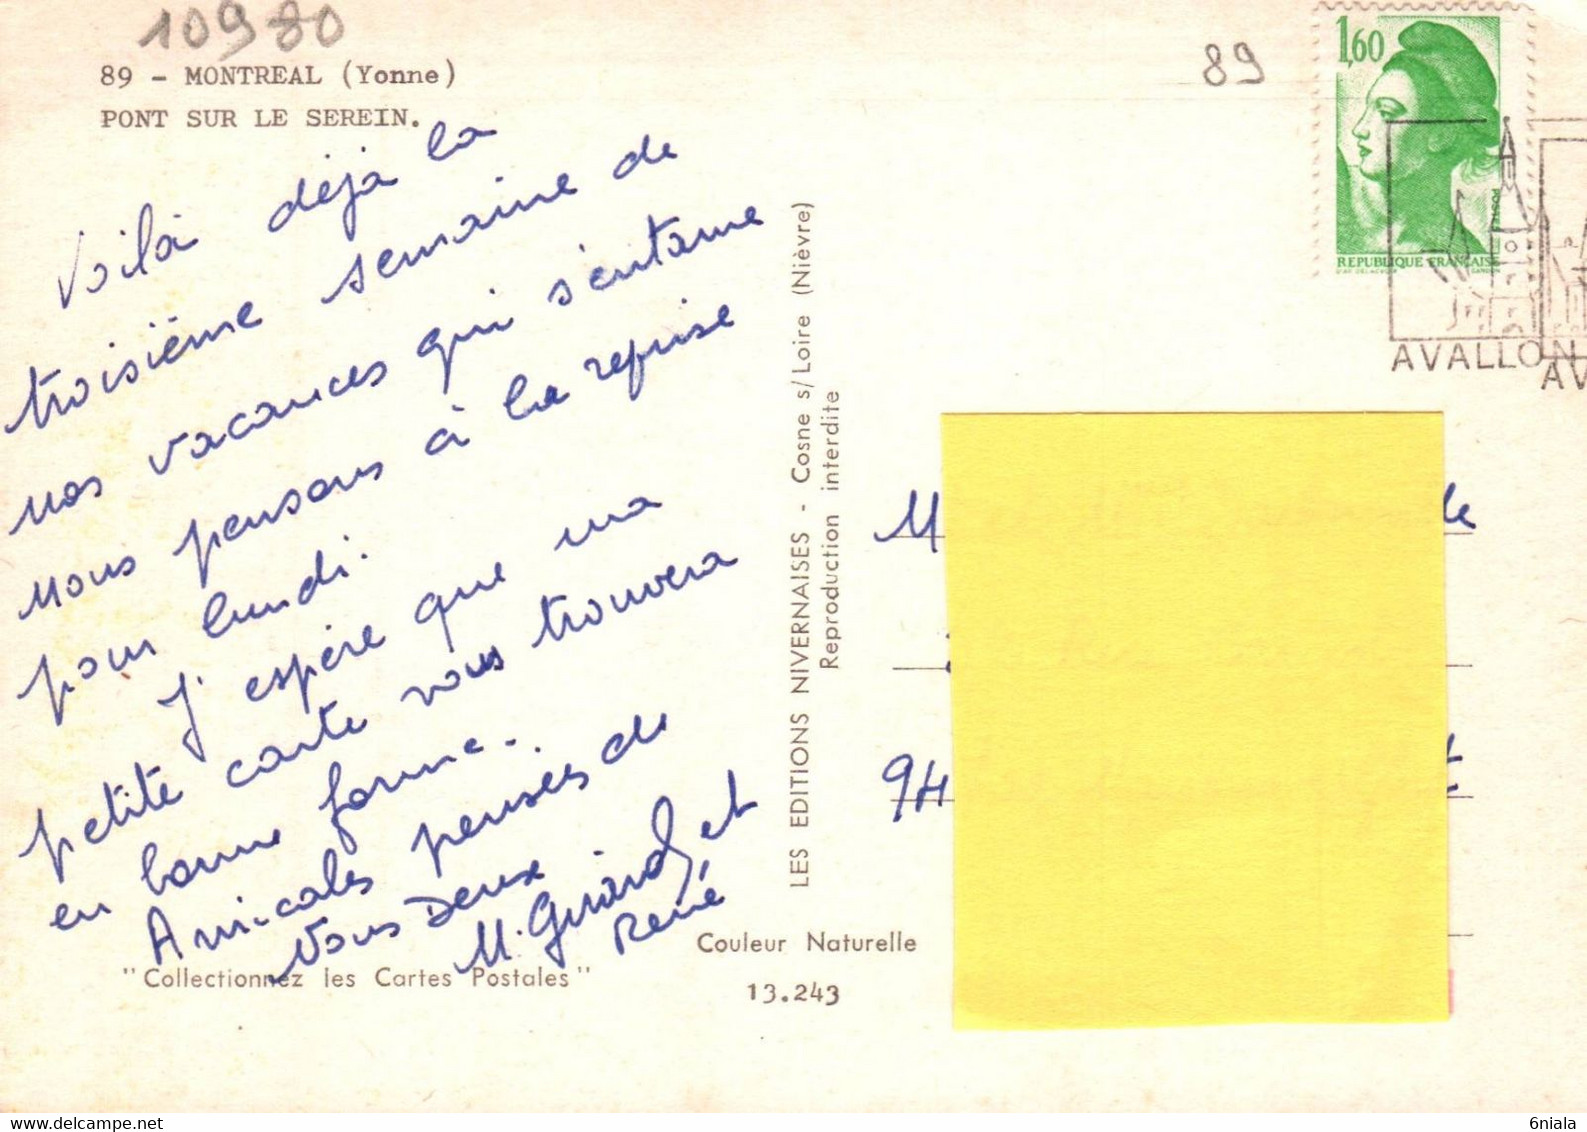 10980
89 - MONTREAL (Yonne)
PONT SUR LE SEREIN.
Voilà déjà la
troisième semaine de
nos vacances qui s'entame
nous pensons à la reprise
pour lundi.
J'espère que ma
petite carte vous trouvera
en bonne forme.
Amicales pensées de
Nous Deux
M. Girard et
René
"Collectionnez les Cartes Postales"
LES EDITIONS NIVERNAISES - Cosne s/Loire (Nièvre)
Reproduction interdite
Couleur Naturelle
13.243
89
1,60
POSTES
REPUBLIQUE FRANÇAISE
AVALLON
AV
M
de
94
6niala - Delcampe.net